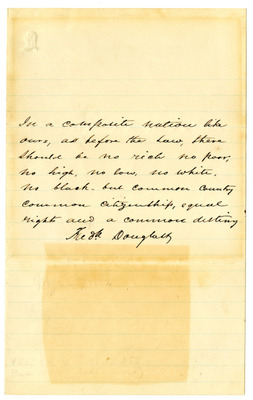 In a composite nation like
ours, as before the Law, there
should be no rich no poor,
no high, no low, no white,
no black - but common country
common citizenship, equal
rights and a common destiny
Fredk Douglass